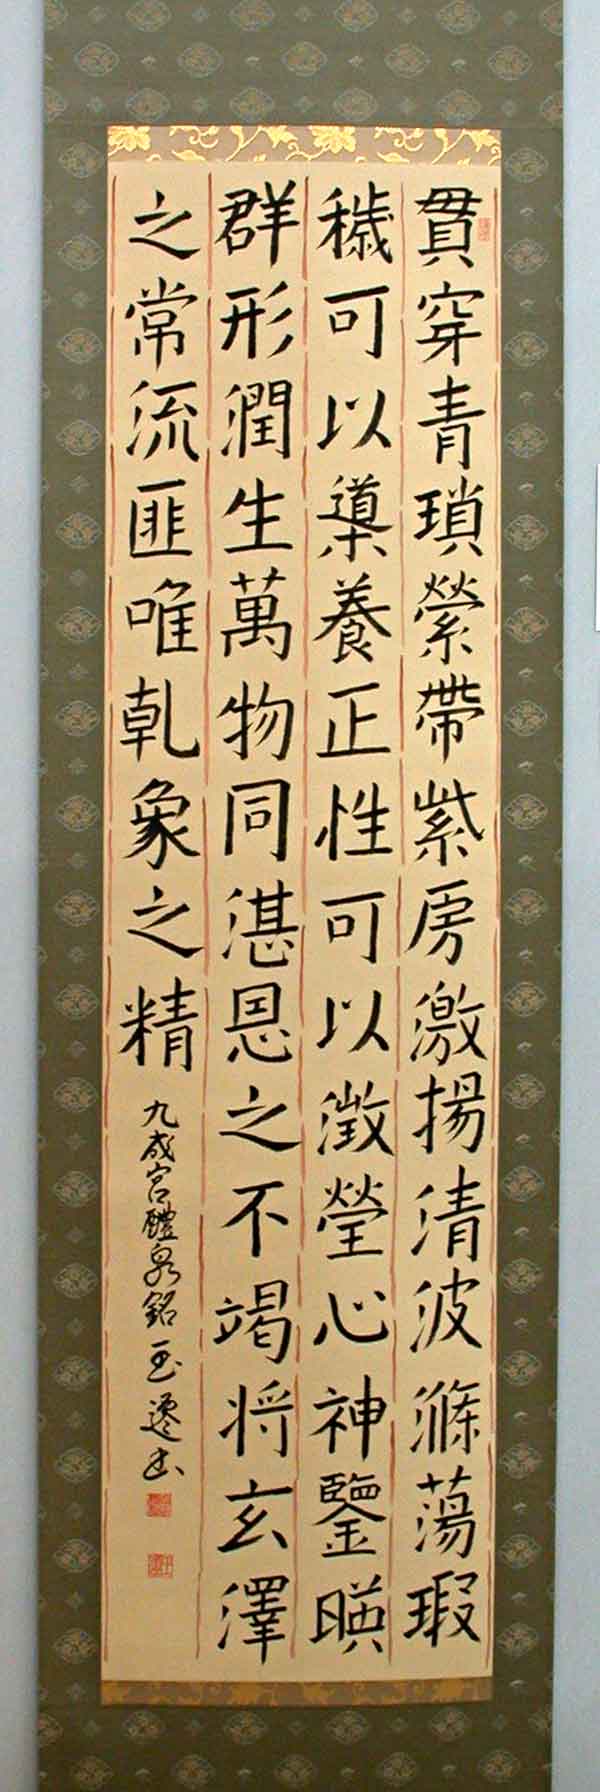 貫穿青瑣縈帶紫房激揚清波滌蕩瑕
穢可以導養正性可以澂瑩心神鑒暎
群形潤生萬物同湛恩之不竭将玄澤
之常流匪唯乾象之精
九成宮醴泉銘 玉遷書